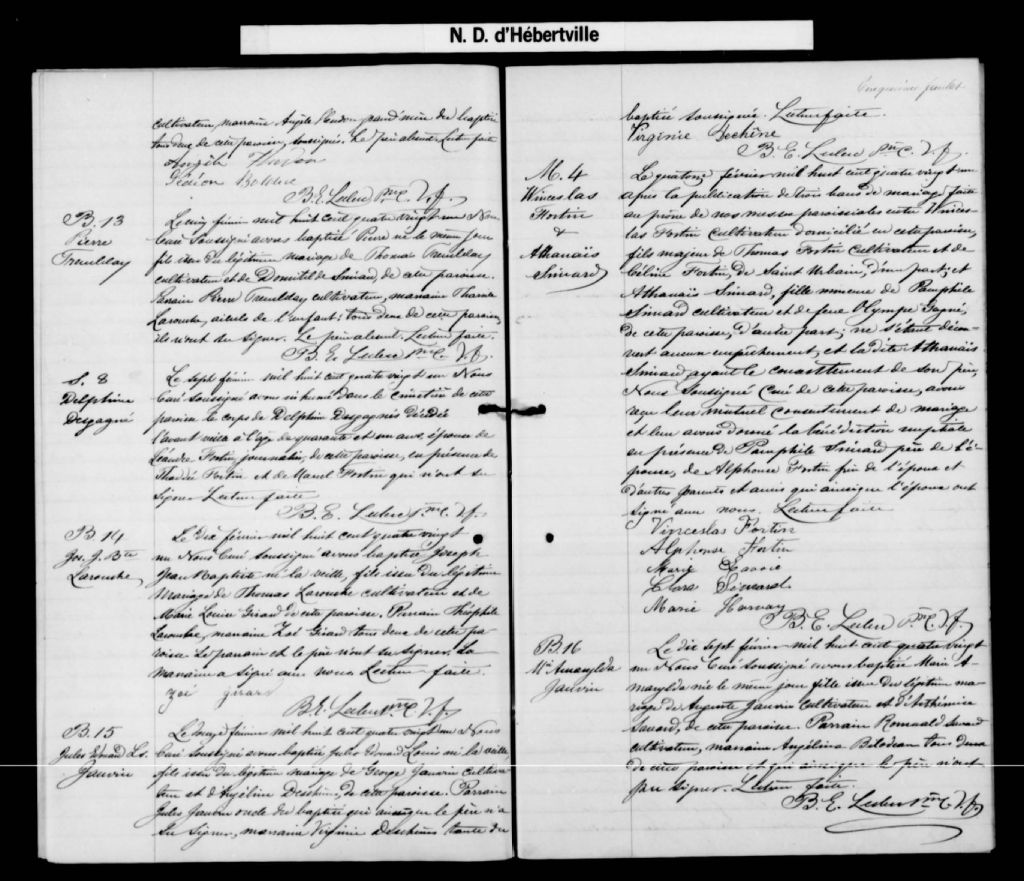 N. D. d'Hébertville
cultivateur, marraine Angèle grand'mère du baptisé
tous deux de cette paroisse, soussignés. Le père absent. Lecture faite
Angèle
Gédéon
B. E. Leclerc Ptre C. V. F.
B. 13
Pierre
Tremblay
février mil huit cent quatre vingt un Nous
Curé soussigné avons baptisé Pierre né le même jour
fils issu du légitime mariage de Thomas Tremblay
cultivateur et de Domitilde Simard, de cette paroisse.
Parrain Pierre Tremblay cultivateur, marraine
Larouche, aïeuls de l'enfant; tous deux de cette paroisse,
ils n'ont su signer. Le père absent. Lecture faite.
B. E. Leclerc Ptre C. V. F.
S. 8
Delphine
Desgagné
Le sept février mil huit cent quatre vingt un Nous
Curé soussigné avons inhumé dans le cimetière de cette
paroisse le corps de Delphine Desgagnés décédée
l'avant veille à l'âge de quarante et un ans, épouse de
Léandre Fortin journalier, de cette paroisse, en présence de
Thaddée Fortin et de Marcel Fortin qui n'ont su
signer Lecture faite
B. E. Leclerc Ptre C. V. F.
B. 14
Jos. J. Bte
Larouche
Le dix février mil huit cent quatre vingt
un Nous Curé soussigné avons baptisé Joseph
Jean Baptiste né la veille, fils issu du légitime
mariage de Thomas Larouche cultivateur et de
Marie Louise Girard de cette paroisse. Parrain Théophile
Larouche, marraine Zoé Girard tous deux de cette pa-
roisse Le parrain et le père n'ont su signer. La
marraine a signé avec nous Lecture faite.
Zoé Girard
B. E. Leclerc Ptre C. V. F.
B. 15
Jules Edouard Ls.
Gauvin
Le février mil huit cent quatre vingt un Nous
Curé soussigné avons baptisé Jules Edouard Louis né la veille
fils issu du légitime mariage de George Gauvin cultiva-
teur et d'Angéline Deschênes, de cette paroisse. Parrain
Jules Gauvin oncle du baptisé qui ainsi que le père n'a
su signer, marraine Virginie Deschênes tante du
Cinquième feuillet
baptisé soussignée. Lecture faite.
Virginie Dechêne
B. E. Leclerc Ptre C. V. F.
M. 4
Winceslas
Fortin
&
Athanaïs
Simard
Le quatorze février mil huit cent quatre vingt un
après la publication de trois bans de mariage faite
au prône de nos messes paroissiales entre Winces-
las Fortin cultivateur domicilié en cette paroisse,
fils majeur de Thomas Fortin cultivateur et de
Fortin, de Saint Urbain, d'une part; et
Athanaïs Simard, fille mineure de Pamphile
Simard cultivateur et de feue Olympe Gagné,
de cette paroisse, d'autre part; ne s'étant décou-
vert aucun empêchement, et la dite Athanaïs
Simard ayant le consentement de son père,
Nous soussigné Curé de cette paroisse, avons
reçu leur mutuel consentement de mariage
et leur avons donné la bénédiction nuptiale
en présence de Pamphile Simard père de l'é-
pouse, de Alphonse Fortin de l'époux et
d'autres parents et amis qui ainsi que l'époux ont
signé avec nous. Lecture faite
Vinceslas Fortin
Alphonse Fortin
Marie
Clara Simard
Marie Harvay
B. E. Leclerc Ptre C. V. F.
B. 16
Mie Amarylda
Gauvin
Le dix sept février mil huit cent quatre vingt
un Nous Curé soussigné avons baptisé Marie A-
marylda née le même jour fille issue du légitime ma-
riage de Auguste Gauvin cultivateur et d'Arthémise
Savard, de cette paroisse. Parrain Romuald Savard
cultivateur, marraine Angélina Bilodeau tous deux
de cette paroisse et qui ainsi que le père n'ont
pu signer. Lecture faite.
B. E. Leclerc Ptre C. V. F.